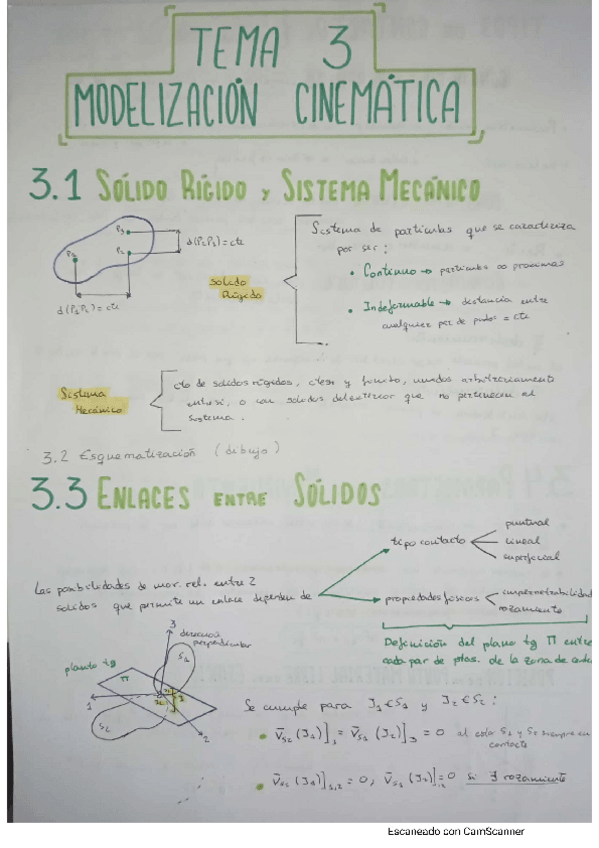 TEMA 3
MODELIZACIÓN CINEMÁTICA
3.1 SÓLIDO RÍGIDO y SISTEMA MECÁNICO
P3
P1
P2
d(P2P3) = cte
d(P1P2) = cte
Sólido
Rígido
Sistema de partículas que se caracteriza
por ser:
• Continuo → partículas ∞ próximas
• Indeformable → distancia entre
cualquier par de puntos = cte
Sistema
Mecánico
cto de sólidos rígidos, y unidos arbitrariamente
entre sí, o con sólidos del exterior que no pertenecen al
sistema.
3.2 Esquematización (dibujo)
3.3 ENLACES ENTRE SÓLIDOS
tipo contacto
puntual
lineal
superficial
Las posibilidades de mov. rel. entre 2
sólidos que permite un enlace dependen de
propiedades físicas
impenetrabilidad
rozamiento
Definición del plano tg Π entre
cada par de ptos. de la zona de
3
dirección
perpendicular
plano tg
Π
S1
S2
1
2
Se cumple para J1 ∈ S1 y J2 ∈ S2:
• v̄S2 (J2)]3 = v̄S1 (J1)]3 = 0 al estar S1 y S2 siempre en
contacto
• v̄S2 (J2)]1,2 = 0, v̄S1 (J1)]1,2 = 0 si ∃ rozamiento
Escaneado con CamScanner